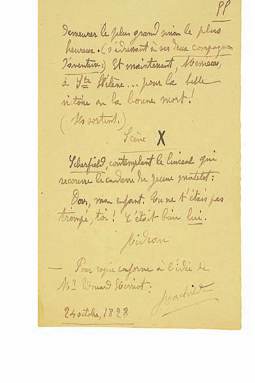 99
demeurer le plus grand sinon le plus
heureux. (s'adressant à ses deux compagnons
) Et maintenant, Messieurs,
à Ste Hélène... pour la belle
victoire ou la bonne mort!
(Ils sortent.)
Scène X
contemplant le linceul qui
recouvre le cadavre du jeune matelot:
Dors, mon enfant, tu ne t'étais pas
trompé, toi! C'était bien lui.
Rideau
— Pour copie conforme à l'idée de
Mr Edouard Herriot:
24 octobre, 1928